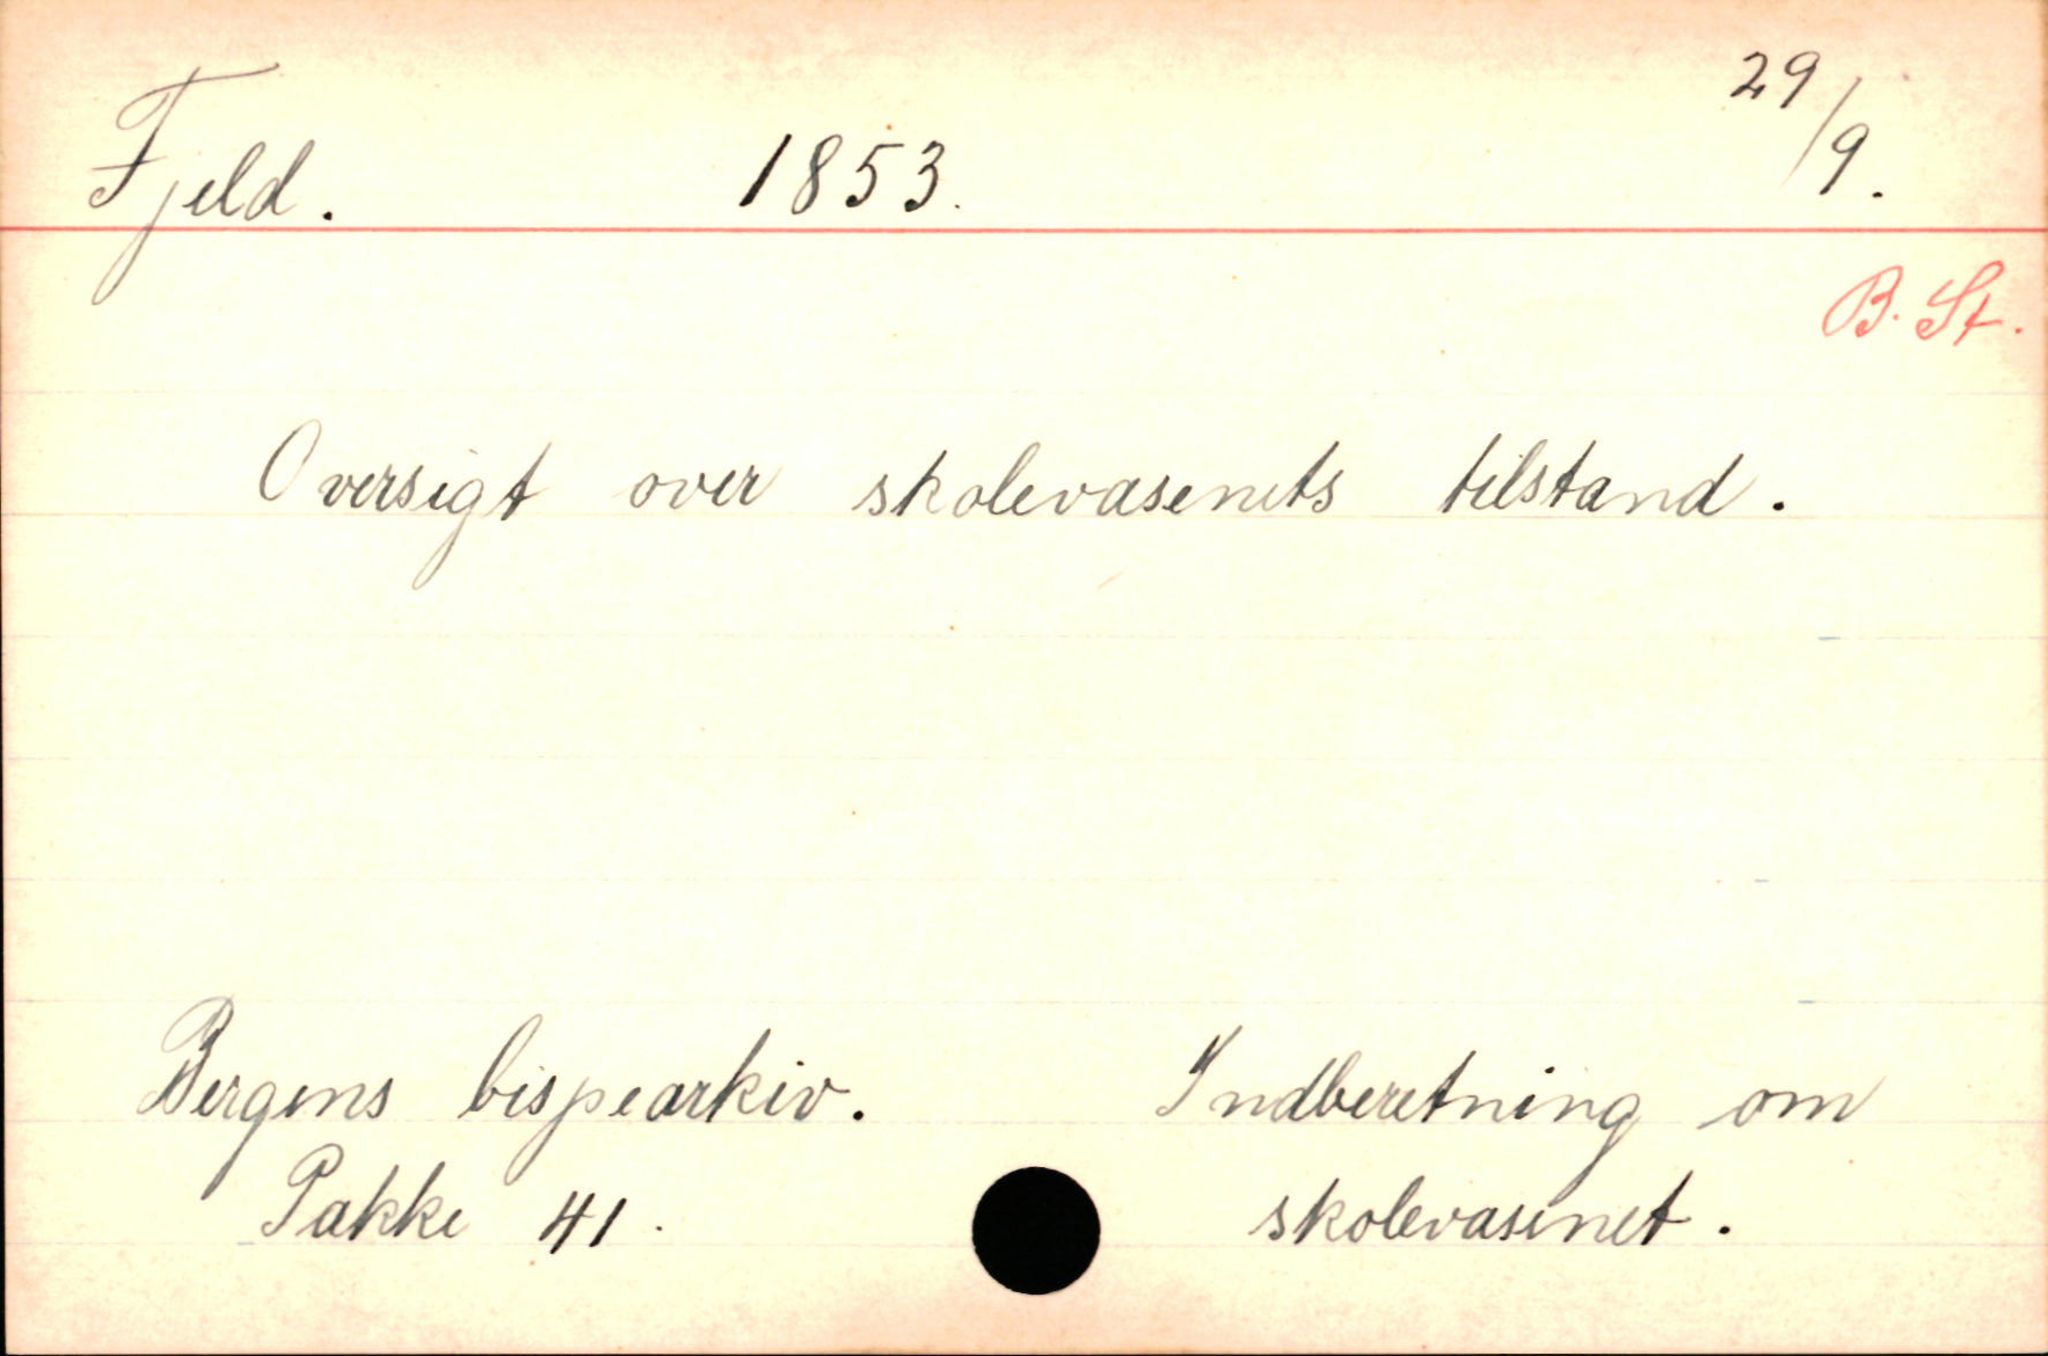 Fjeld. 1853. 29/9.
B. St.
Oversigt over skolevæsenets tilstand.
Bergens bispearkiv. Indberetning om
Pakke 41. skolevæsenet.